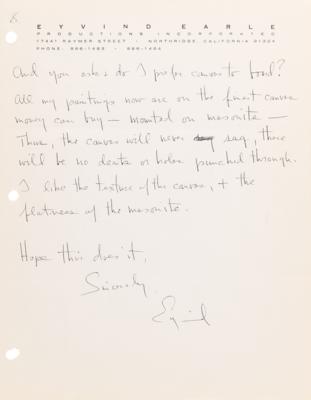 8.
EYVIND EARLE
PRODUCTIONS INCORPORATED
17441 RAYMER STREET · NORTHRIDGE, CALIFORNIA 91324
PHONE: 886-1483 · 886-1404
And you asks do I prefer canvas to board?
All my paintings now are on the finest canvas
money can buy — mounted on masonite —
Thus, the canvas will never sag, there
will be no dents or holes punched through.
I like the texture of the canvas, + the
flatness of the masonite.
Hope this does it,
Sincerely,
Eyvind